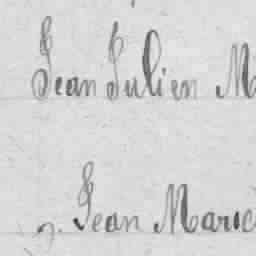 Jean Julien M
Jean Marie